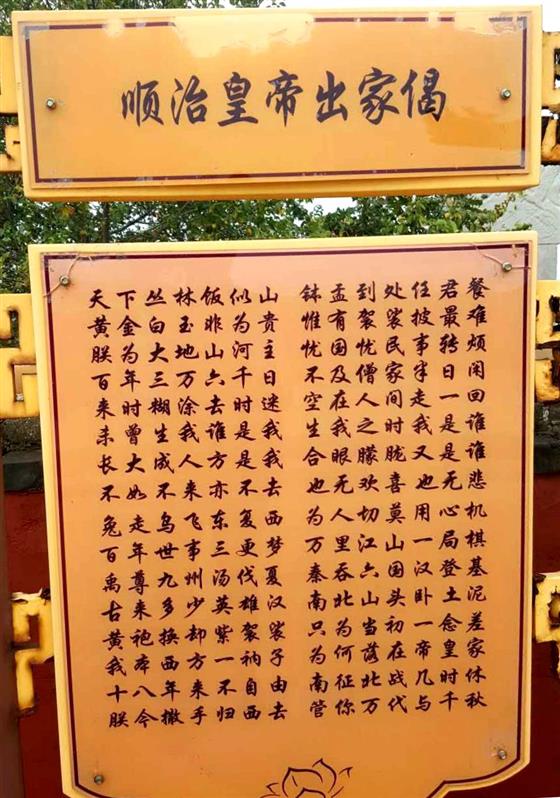 顺治皇帝出家偈
天下丛林饭似山 钵盂到处任君餐
黄金白玉非为贵 惟有袈裟披最难
朕为大地山河主 忧国忧民事转烦
百年三万六千日 不及僧家半日闲
来时糊涂去时迷 空在人间走一回
未曾生我谁是我 生我之时我是谁
长大成人方是我 合眼朦胧又是谁
不如不来亦不去 也无欢喜也无悲
兔走乌飞东复西 为人切莫用心机
百年世事三更梦 万里江山一局棋
禹尊九州汤伐夏 秦吞六国汉登基
古来多少英雄汉 南北山头卧土泥
黄袍换却紫袈裟 只为当初一念差
我本西方一衲子 为何落在帝皇家
十八年来不自由 南征北战几时休
朕今撒手归西去 管你万代与千秋